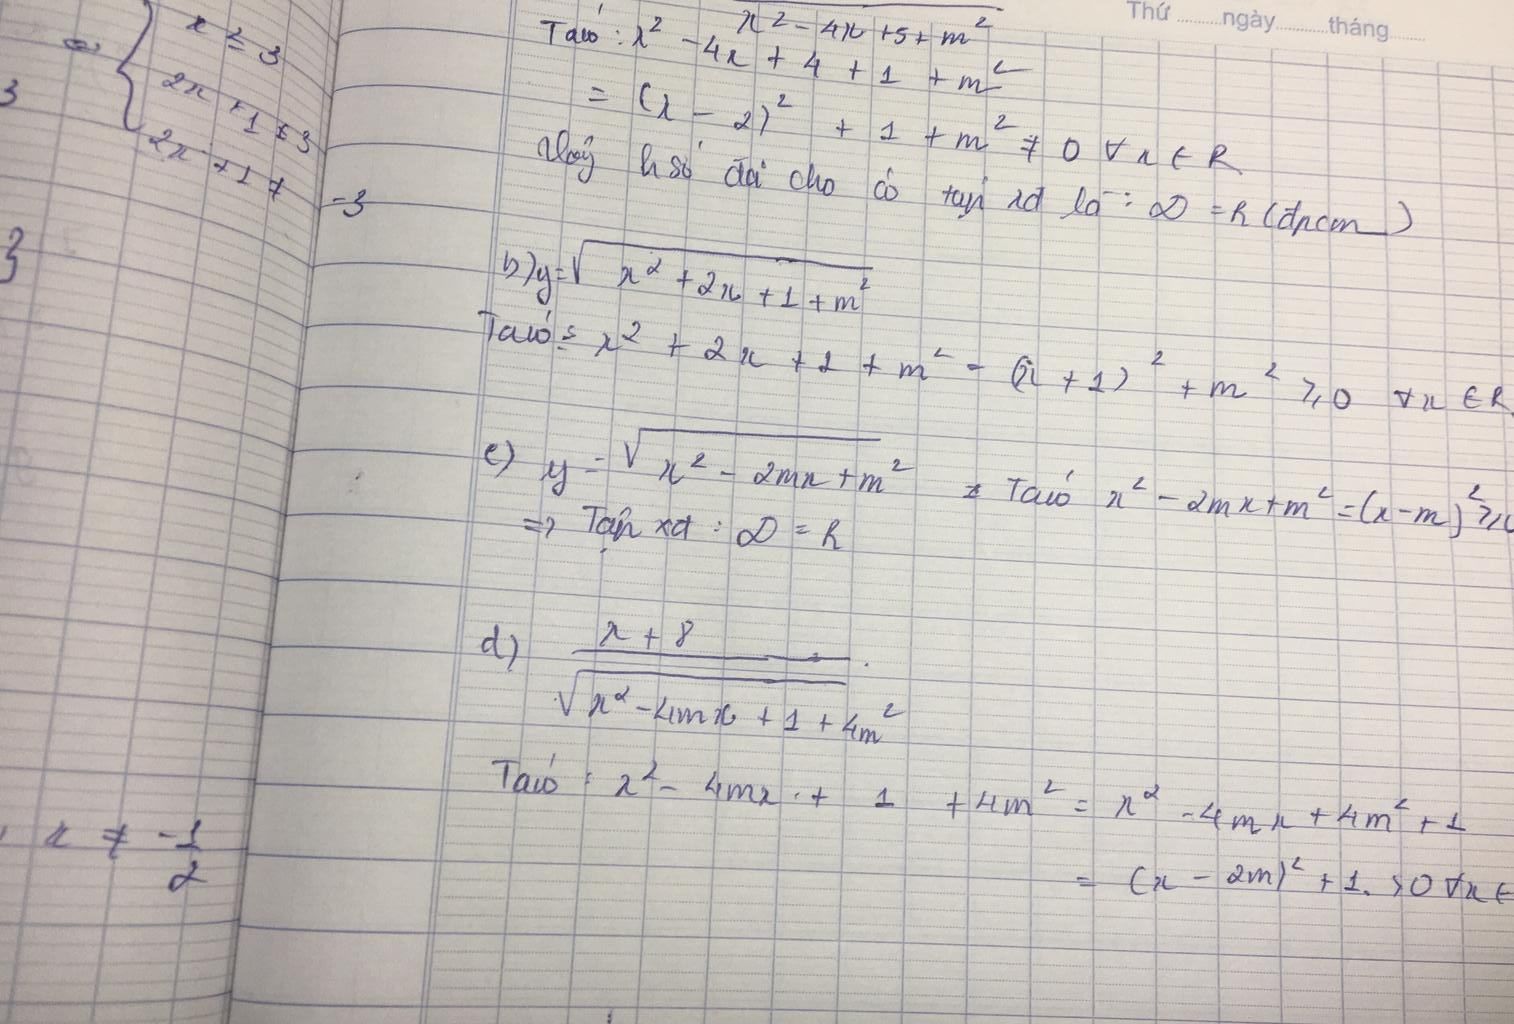 Thứ ........ ngày ........... tháng .......
⇔ { x ≥ 3
2x + 1 ≠ 3
2x + 1 ≠ -3
3
}
x ≠ -1/2
x² - 4x + 5 + m²
Ta có : x² - 4x + 4 + 1 + m²
= (x - 2)² + 1 + m² ≠ 0 ∀x ∈ R
Vậy h số đã cho có tập xđ là : D = R (đpcm)
b) y = √(x² + 2x + 1 + m²)
Ta có : x² + 2x + 1 + m² = (x + 1)² + m² ≥ 0 ∀x ∈ R
c) y = √(x² - 2mx + m²) Ta có x² - 2mx + m² = (x - m)² ≥ 0
=> Tập xđ : D = R
d) (x + 8)/√(x² - 4mx + 1 + 4m²)
Ta có : x² - 4mx + 1 + 4m² = x² - 4mx + 4m² + 1
= (x - 2m)² + 1 > 0 ∀x ∈